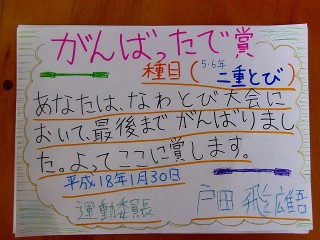 がんばったで賞
種目(5・6年 二重とび)
あなたは、なわとび大会に
おいて、最後までがんばりまし
た。よってここに賞します。
平成18年1月30日
運動委員長 戸田 飛雄吾